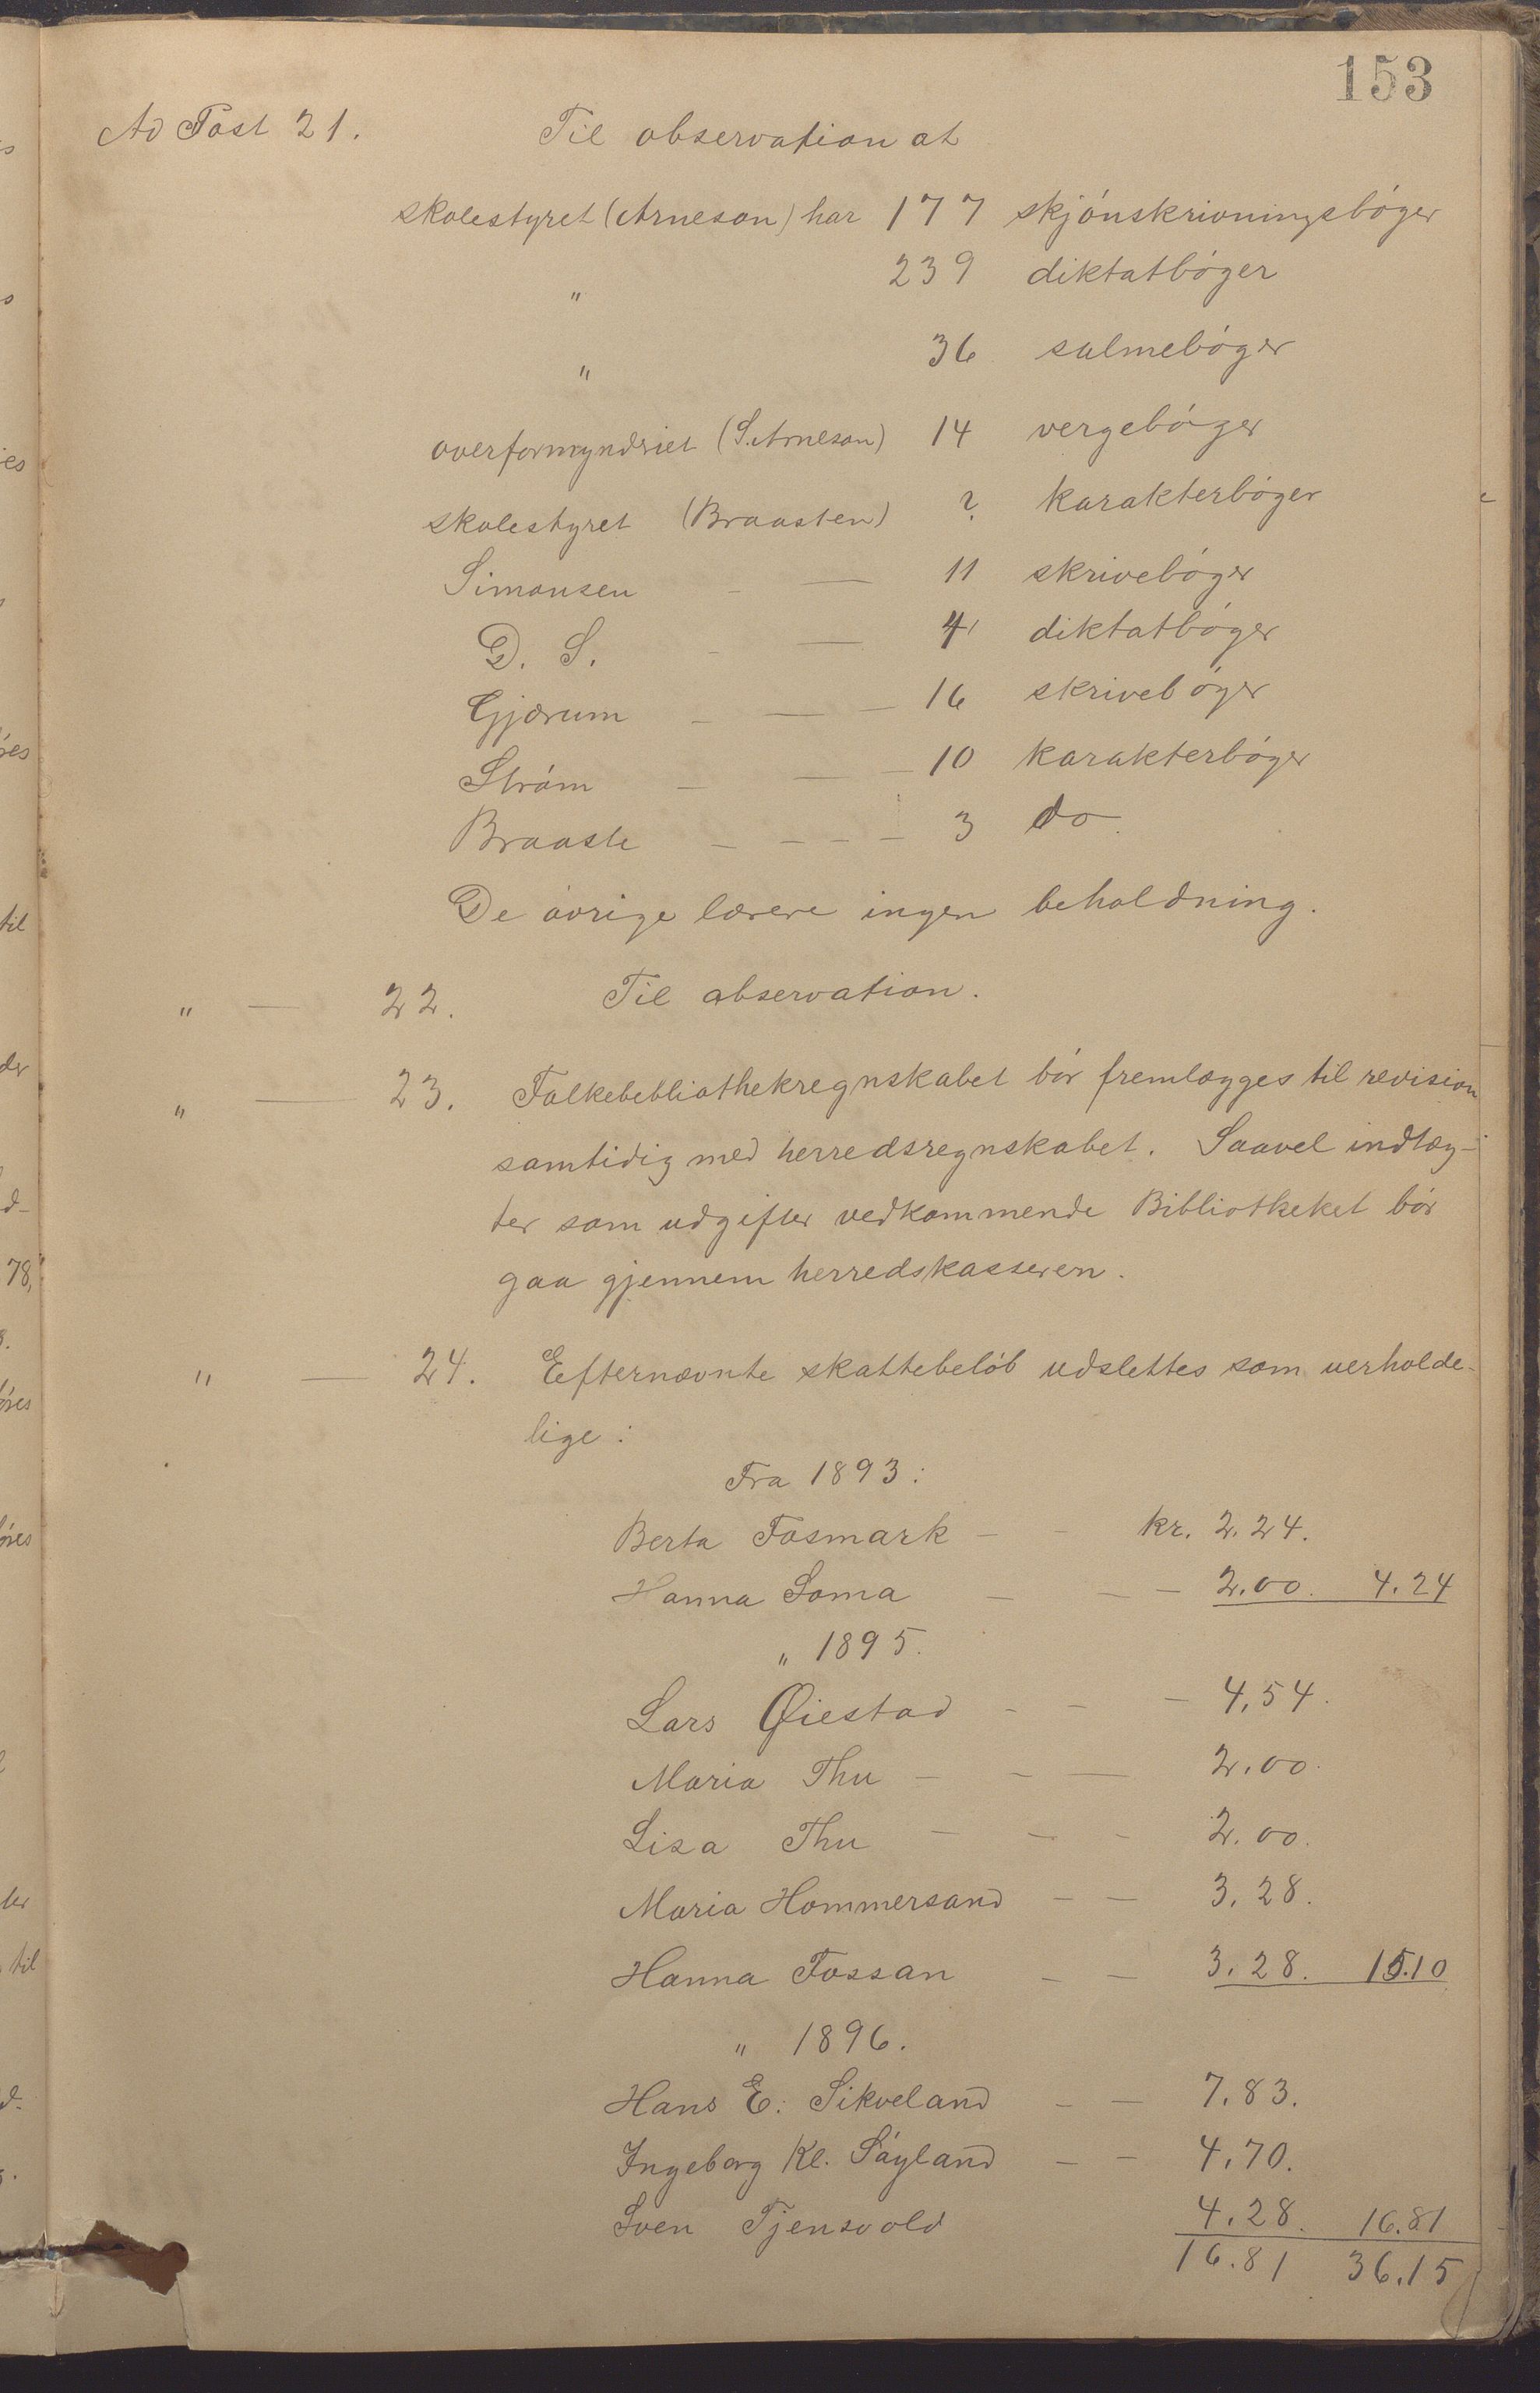 153
Ad Post 21. Til observation at
skolestyret (Arneson) har 177 skjónskrivningsbóger
" 239 diktatbóger
" 36 salmebóger
overformyndriet (S. Arneson) 14 vergebóger
skolestyret (Braasten) ? karakterbóger
Simonsen - — 11 skrivebóger
D. S. - — 4 diktatbóger
Gjærum - — - 16 skrivebóger
Stróm - — - 10 karakterbóger
Braaste - - - - 3 do
De óvrige lærere ingen beholdning.
" — 22. Til observation.
" — 23. Folkebebliothekregnskabet bór fremlægges til revision
samtidig med herredsregnskabet. Saavel indtæg-
ter som udgifter vedkommende Bibliotheket bór
gaa gjennem herredskasseren.
" — 24. Efternævnte skattebelób udslettes som uerholde-
lige:
Fra 1893:
Berta Fosmark - - kr. 2.24.
Hanna Soma - - - 2.00. 4.24
" 1895.
Lars Øiestad - - - 4.54.
Maria Thu - - — 2.00.
Lisa Thu - - - 2.00.
Maria Hommersand - - 3.28.
Hanna Fossan - - 3.28. 15.10
" 1896.
Hans E. Sikveland - - 7.83.
Ingeborg Kl. Sóyland - - 4.70.
Sven Tjensvold 4.28. 16.81
16.81 36.15